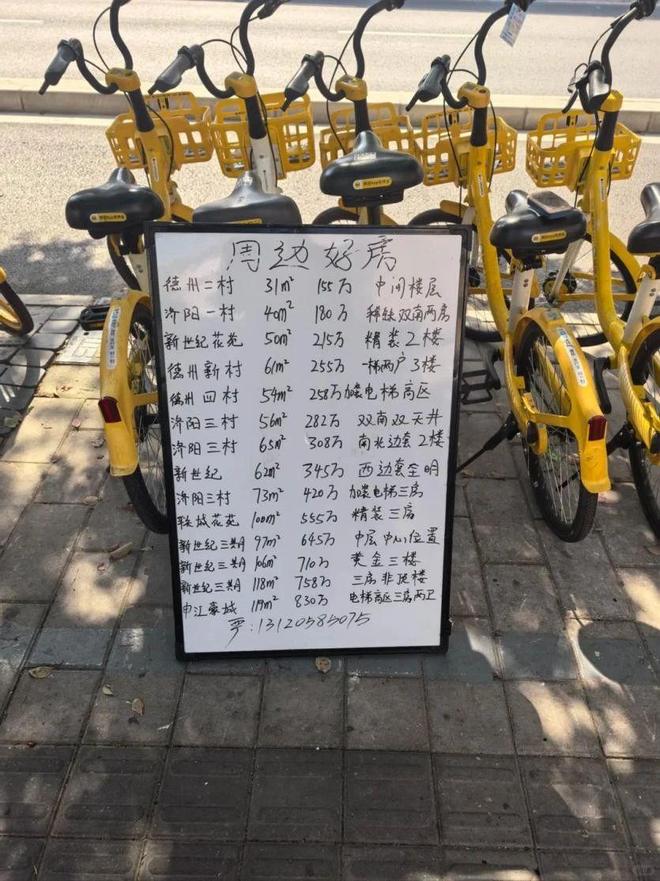 周边好房
德州二村 31m² 155万 中间楼层
济阳一村 40m² 180万 稀缺双南两房
新世纪花苑 50m² 215万 精装2楼
德州新村 61m² 255万 一梯两户3楼
德州四村 54m² 258万 加装电梯高区
济阳三村 56m² 282万 双南双天井
济阳三村 65m² 308万 南北边套2楼
新世纪 62m² 345万 西边套全明
济阳三村 73m² 420万 加装电梯三房
联城花苑 100m² 555万 精装三房
新世纪三期 97m² 645万 中层中心位置
新世纪三期 106m² 710万 黄金三楼
新世纪三期 118m² 758万 三房非顶楼
申江豪城 119m² 830万 电梯高区三房两卫
严:13120585075